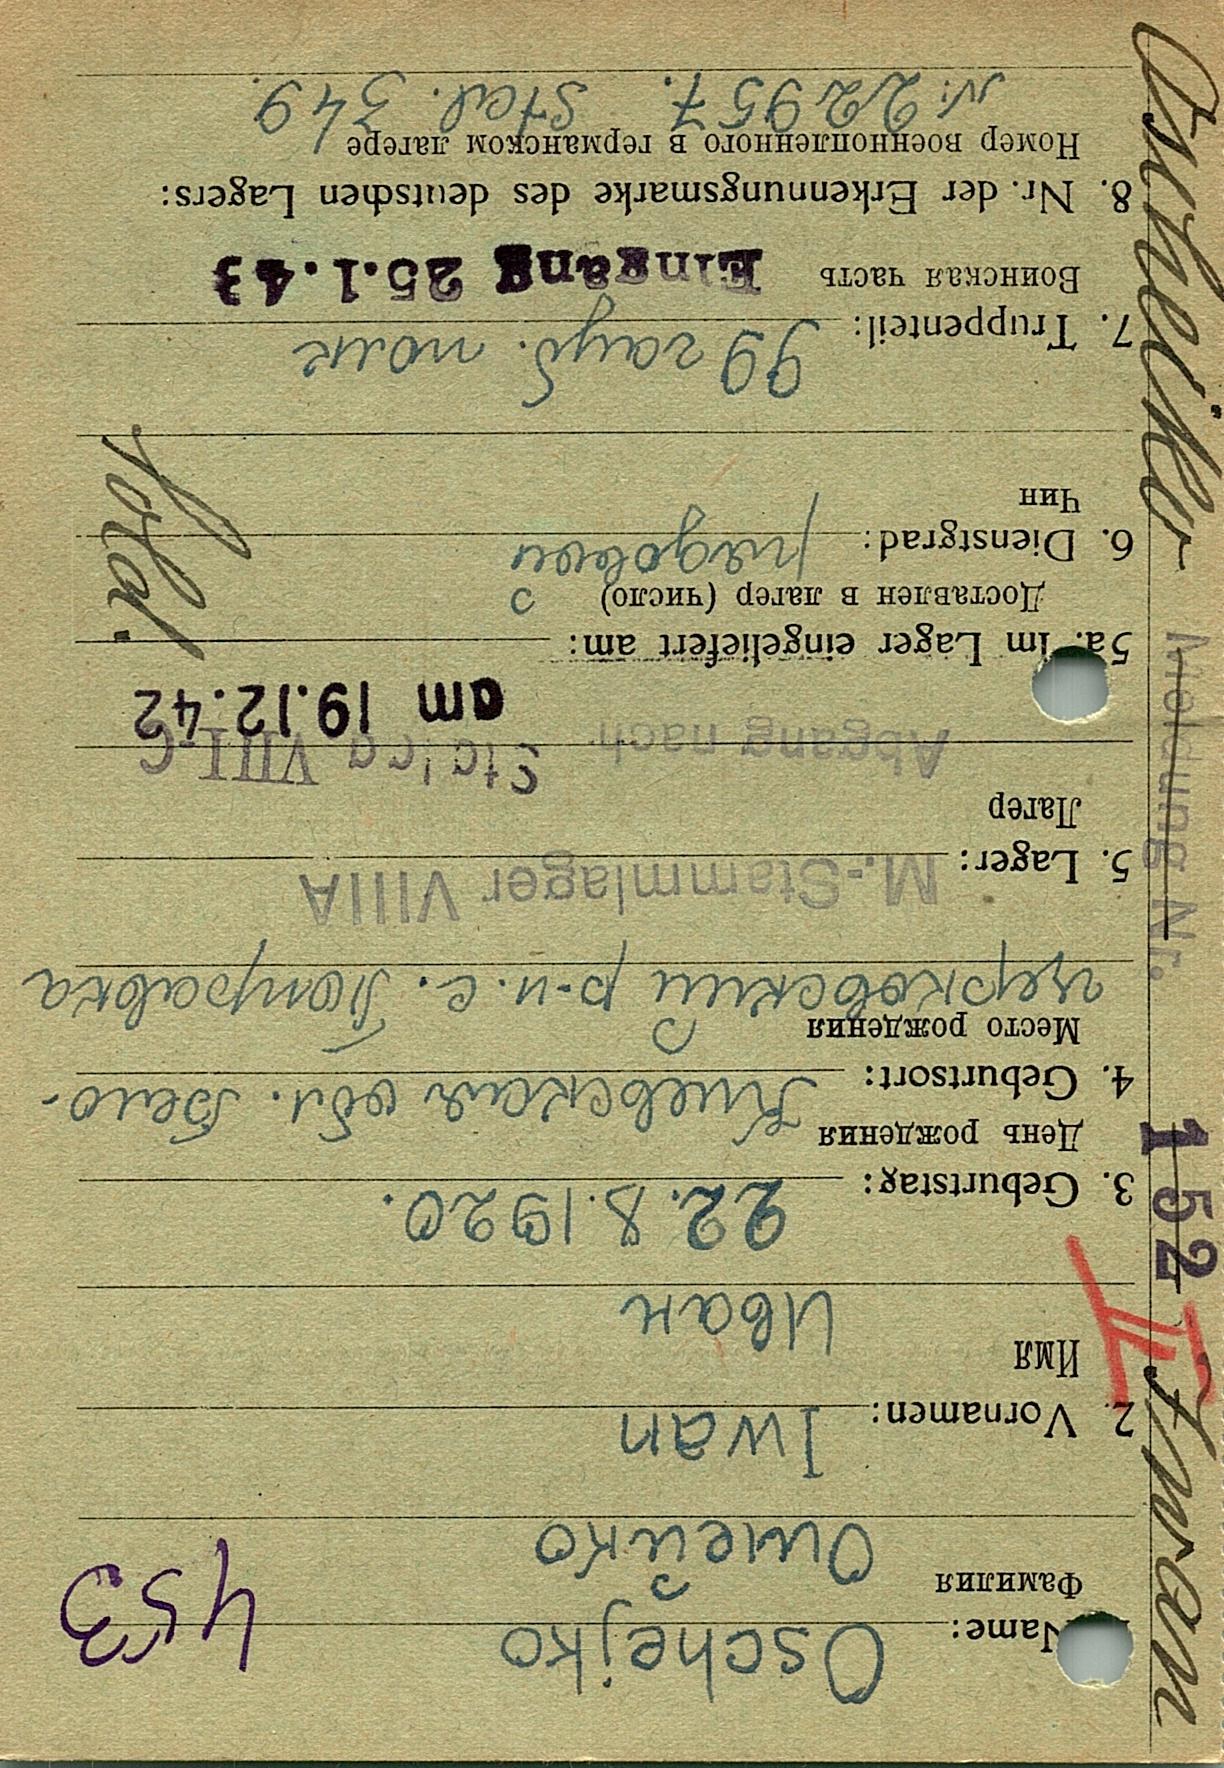 Oscheiko Iwan
Meldung Nr. 152
II
453
Name: Oschejko
Фамилия
Ошейко
2. Vornamen: Iwan
Имя
Иван
3. Geburtstag: 22.8.1920.
День рождения
4. Geburtsort: Киевская обл. Бело-
Место рождения
церковский р-н. с.
5. Lager: M.-Stammlager VIIIA
Лагер
Abgang nach Stalag VIII C
am 19.12.42
5a. im Lager eingeliefert am:
Доставлен в лагер (число)
6. Dienstgrad: рядовой
Чин
Sold.
7. Truppenteil: 99 гауб. полк
Воинская часть
Eingang 25.1.43
8. Nr. der Erkennungsmarke des deutschen Lagers:
Номер военнопленного в германском лагере
N. 22957. Stal. 349.